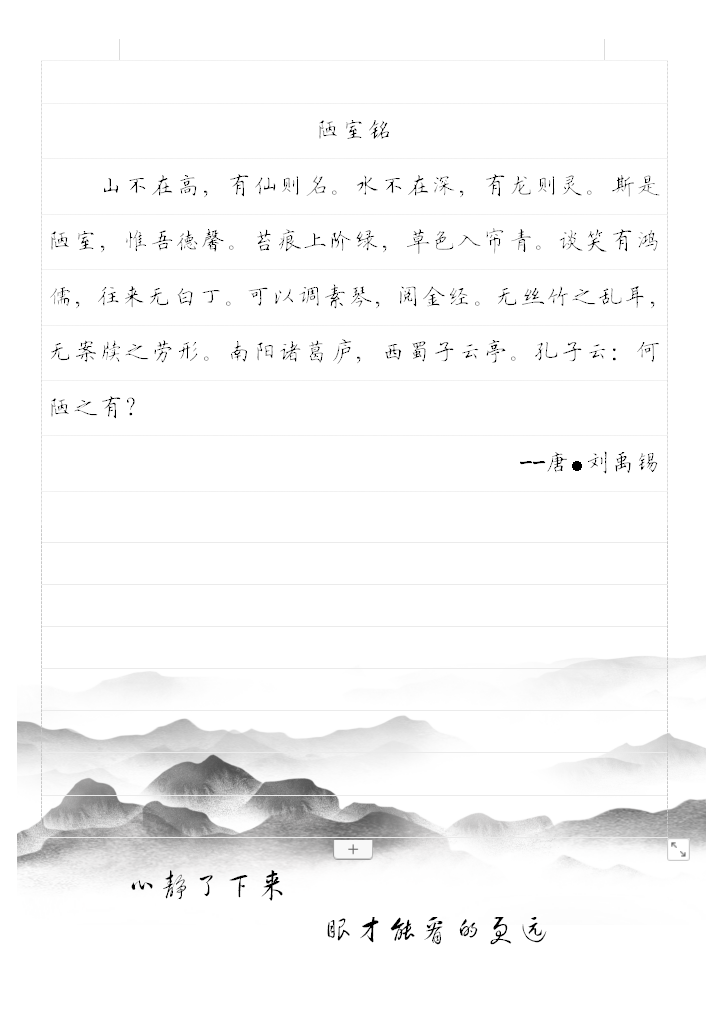 陋室铭
山不在高，有仙则名。水不在深，有龙则灵。斯是
陋室，惟吾德馨。苔痕上阶绿，草色入帘青。谈笑有鸿
儒，往来无白丁。可以调素琴，阅金经。无丝竹之乱耳，
无案牍之劳形。南阳诸葛庐，西蜀子云亭。孔子云：何
陋之有？
——唐●刘禹锡
心静了下来
眼才能看的更远